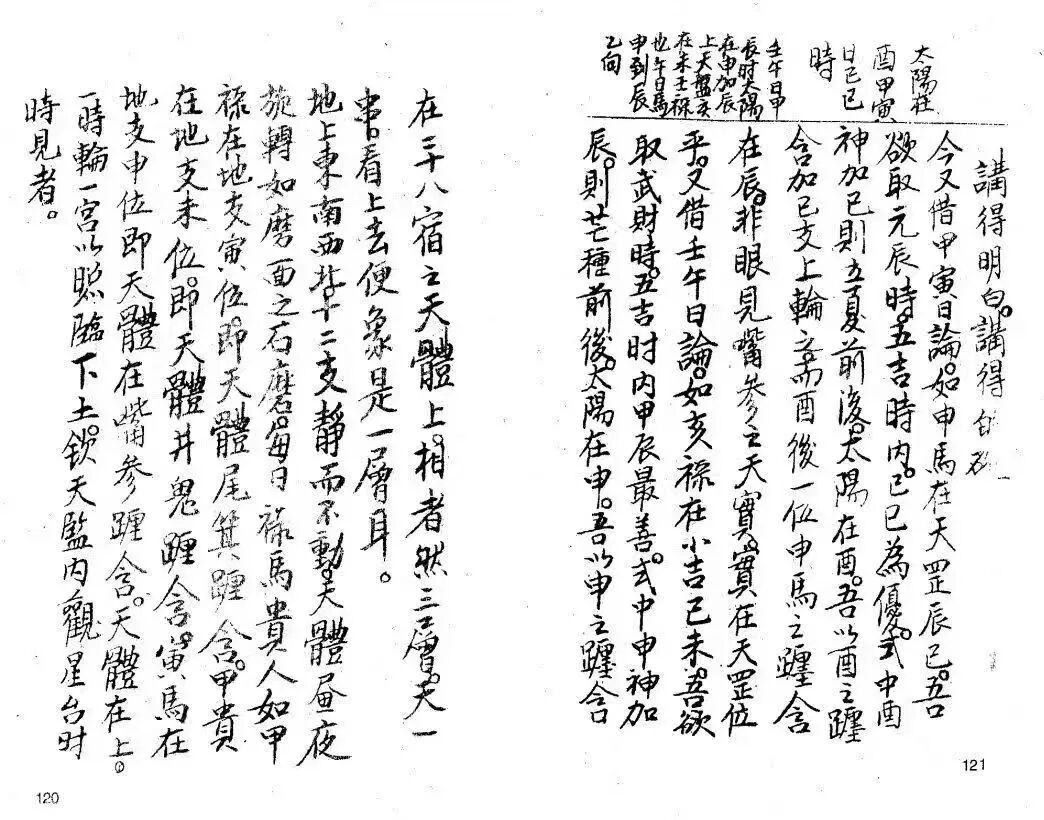 在二十八宿之天體上。相者然三層。天一
串。看上去便象是一層耳。
地上東南西北十二支靜而不動。天體昼夜
旋轉如磨面之石磨。每日祿馬貴人如甲
祿在地支寅位。即天體尾箕躔舍。甲貴
在地支未位。即天體井鬼躔舍。寅馬在
地支申位即天體在觜參躔舍。天體在上。
一時輪一宮以照臨下土。欽天監內觀星台时
時見者。
120
太陽在
酉甲寅
日己巳
時
壬午日甲
辰时太陽
在申加辰
上天盤亥
在未壬祿
也午日馬
申到辰
乙向
講得明白。講得的確
今又借甲寅日論。如申馬在天罡辰已。吾
欲取元辰時。五吉時內。己巳為優。式中酉
神加巳則立夏前後。太陽在酉。吾以酉之躔
舍加巳支上輪之。而酉後一位申馬之躔舍
在辰。非眼見嘴參之天實。實在天罡位
乎。又借壬午日論。如亥祿在小吉已未。吾欲
取武財時。五吉时內甲辰最善。式中申神加
辰。則芒種前後。太陽在申。吾以申之躔舍
121